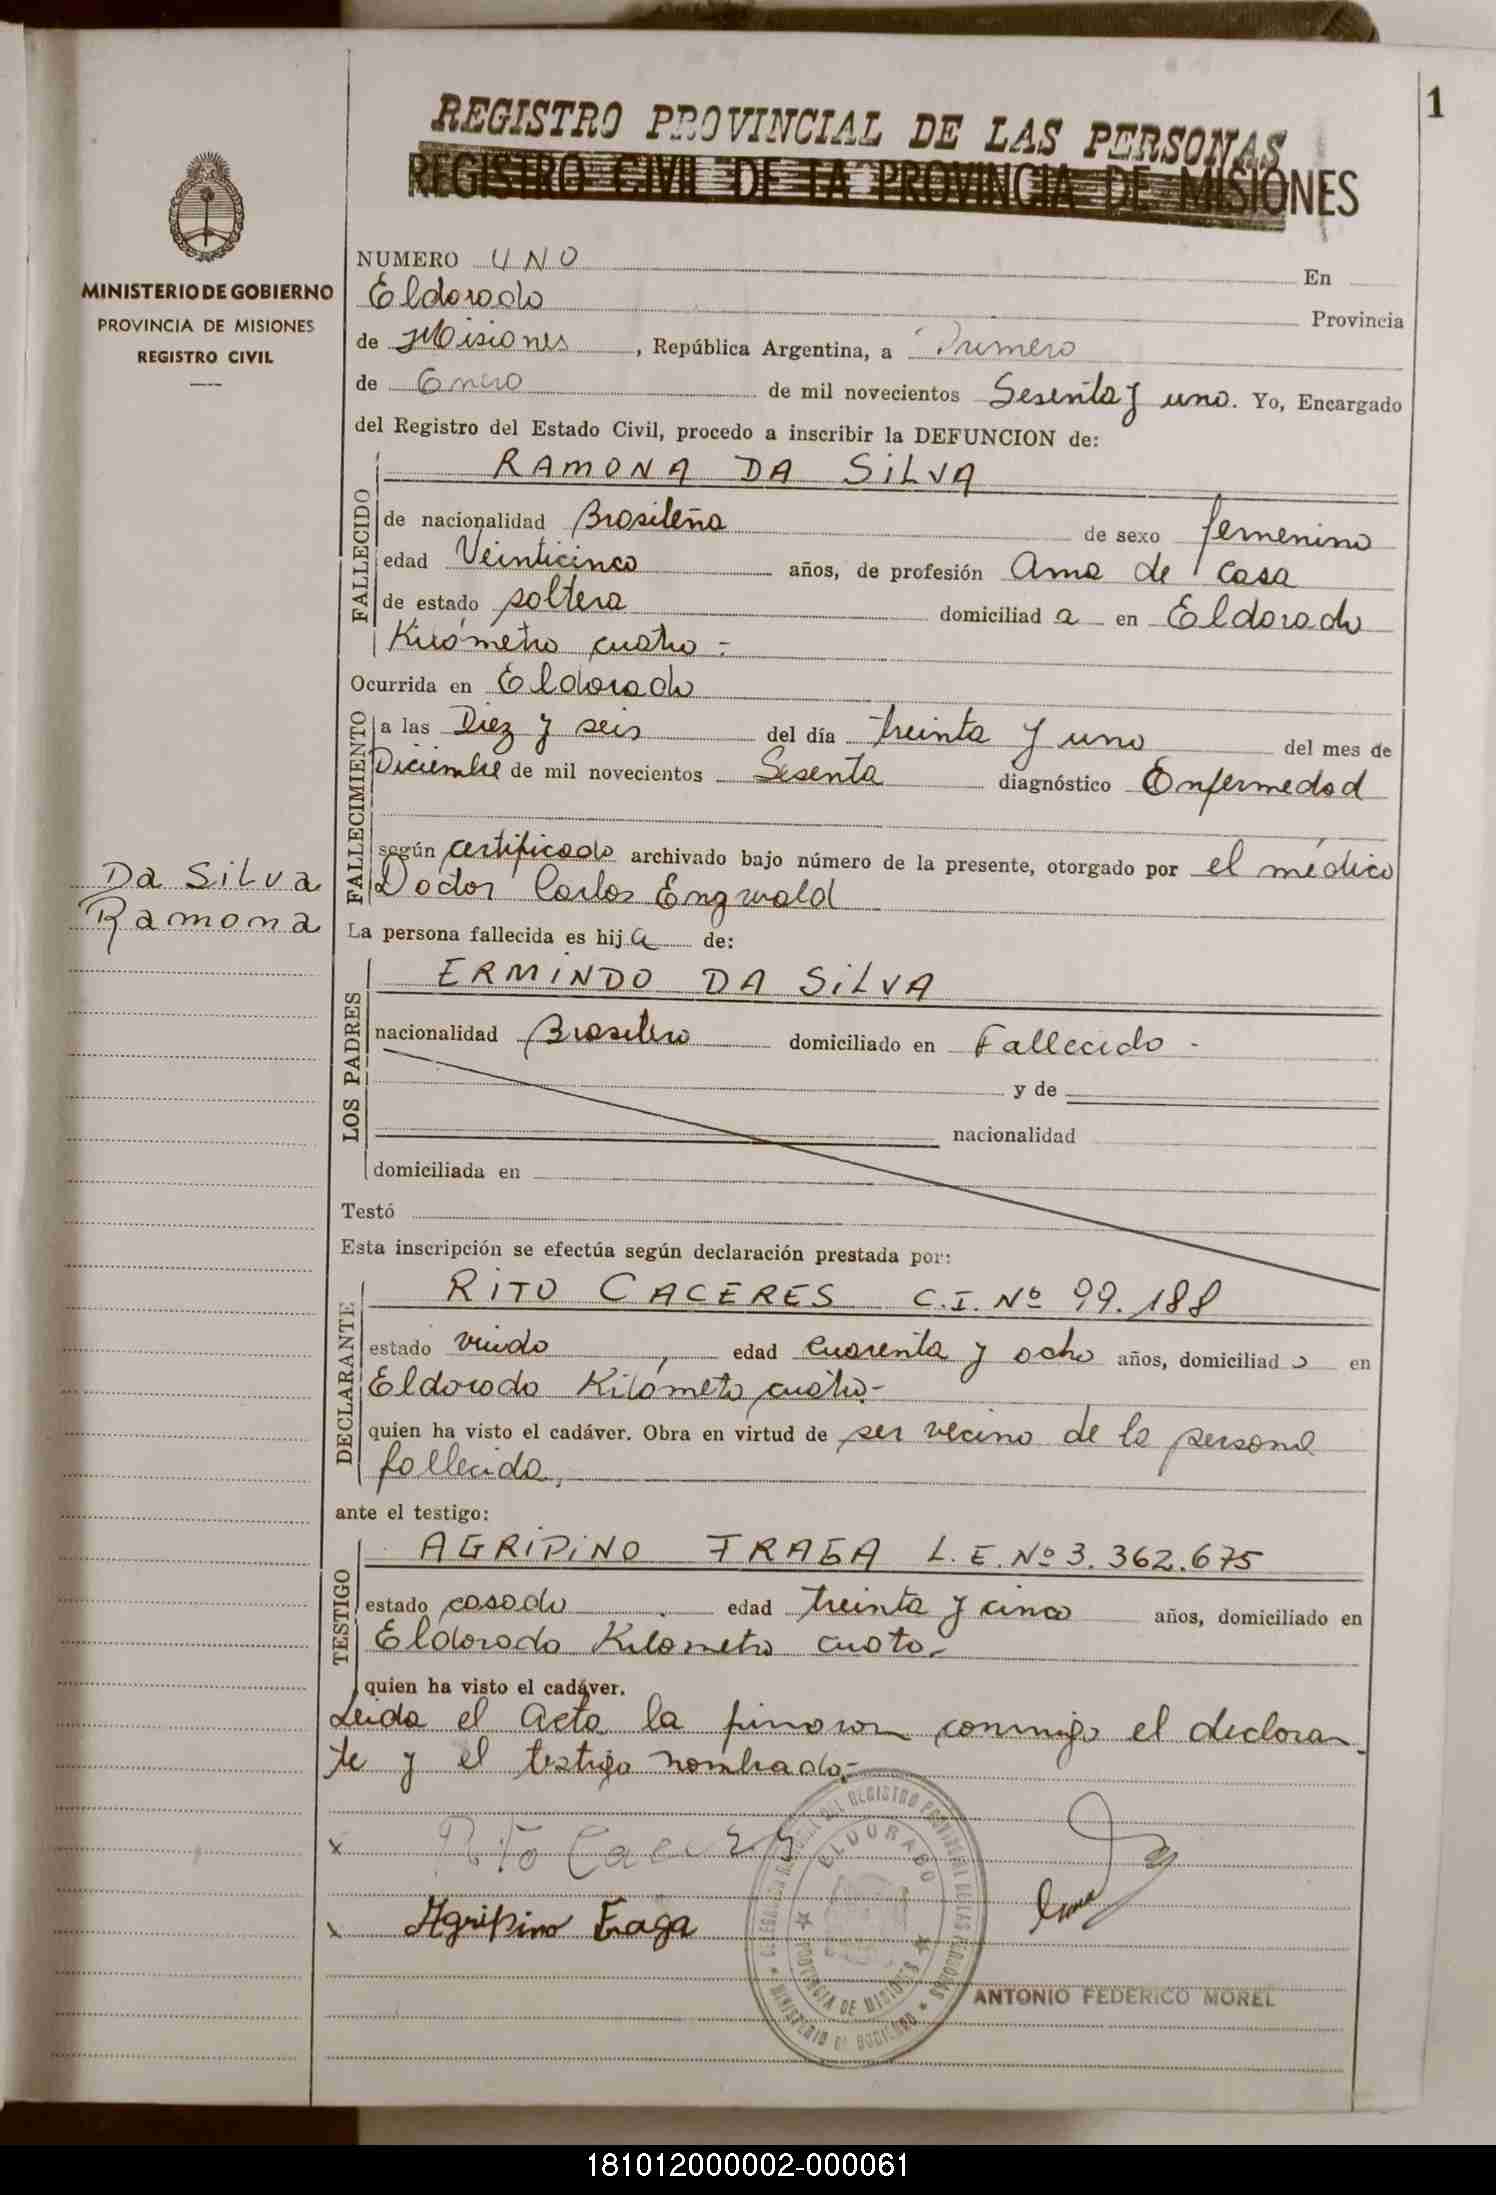 1
REGISTRO PROVINCIAL DE LAS PERSONAS
REGISTRO CIVIL DE LA PROVINCIA DE MISIONES
MINISTERIO DE GOBIERNO
PROVINCIA DE MISIONES
REGISTRO CIVIL
NUMERO UNO En
Eldorado Provincia
de Misiones, República Argentina, a Primero
de Enero de mil novecientos Sesenta y uno. Yo, Encargado
del Registro del Estado Civil, procedo a inscribir la DEFUNCION de:
FALLECIDO
RAMONA DA SILVA
de nacionalidad Brasileña de sexo femenino
edad Veinticinco años, de profesión Ama de casa
de estado soltera domiciliada en Eldorado
Kilómetro cuatro-
Ocurrida en Eldorado
FALLECIMIENTO
a las Diez y seis del día treinta y uno del mes de
Diciembre de mil novecientos Sesenta diagnóstico Enfermedad
según certificado archivado bajo número de la presente, otorgado por el médico
Doctor Carlos Engwald
Da Silva
Ramona
La persona fallecida es hija de:
LOS PADRES
ERMINDO DA SILVA
nacionalidad Brasilero domiciliado en Fallecido -
y de
nacionalidad
domiciliada en
Testó
Esta inscripción se efectúa según declaración prestada por:
DECLARANTE
RITO CACERES C.I. Nº 99.188
estado viudo, edad cuarenta y ocho años, domiciliado en
Eldorado Kilómetro cuatro-
quien ha visto el cadáver. Obra en virtud de ser vecino de la persona
fallecida,
ante el testigo:
TESTIGO
AGRIPINO FRAGA L.E. Nº 3.362.675
estado casado edad treinta y cinco años, domiciliado en
Eldorado Kilometro cuatro-
quien ha visto el cadáver.
Leida el Acta la firmaron conmigo el declaran-
te y el testigo nombrado.-
x Rito Caceres
x Agripino Fraga
DELEGACION DEL REGISTRO PROVINCIAL DE LAS PERSONAS
ELDORADO
PROVINCIA DE MISIONES
MINISTERIO DE GOBIERNO
ANTONIO FEDERICO MOREL
181012000002-000061